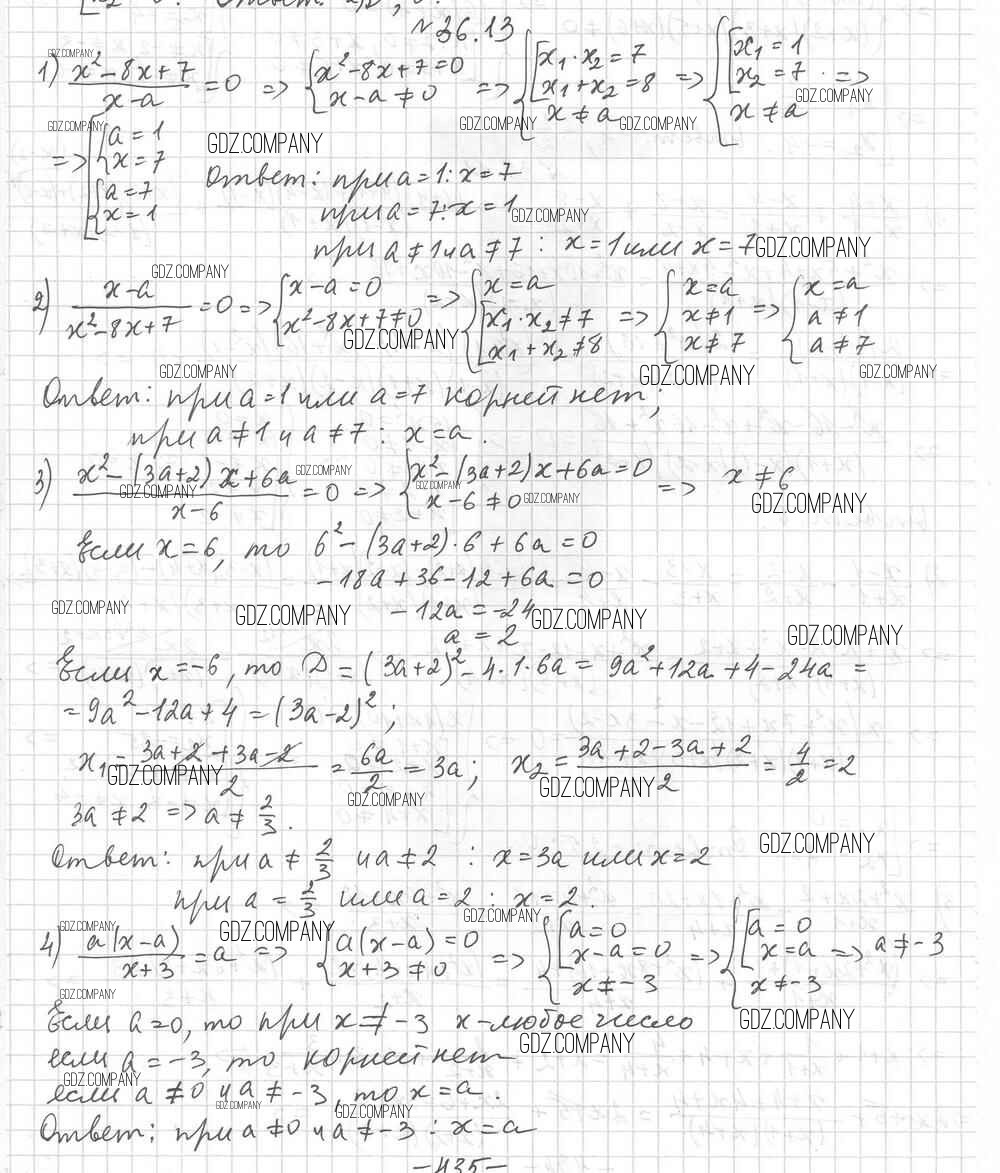 №36.13
1) (x²-8x+7)/(x-a) = 0 => { x²-8x+7=0; x-a≠0 => { [ x₁·x₂=7; x₁+x₂=8; x≠a => { [ x₁=1; x₂=7; x≠a =>
=> [ { a=1; x=7; { a=7; x=1
Ответ: при a=1: x=7
при a=7: x=1
при a≠1 и a≠7: x=1 или x=7
2) (x-a)/(x²-8x+7) = 0 => { x-a=0; x²-8x+7≠0 => { x=a; [ x₁·x₂≠7; x₁+x₂≠8 => { x=a; x≠1; x≠7 => { x=a; a≠1; a≠7
Ответ: при a=1 или a=7 корней нет;
при a≠1 и a≠7: x=a.
3) (x²-(3a+2)x+6a)/(x-6) = 0 => { x²-(3a+2)x+6a=0; x-6≠0 => x≠6
Если x=6, то 6²-(3a+2)·6+6a=0
-18a+36-12+6a=0
-12a=-24
a=2
Если x=-6, то D=(3a+2)²-4·1·6a=9a²+12a+4-24a=
=9a²-12a+4=(3a-2)²;
x₁=(3a+2+3a-2)/2=6a/2=3a; x₂=(3a+2-3a+2)/2=4/2=2
3a≠2 => a≠2/3.
Ответ: при a≠2/3 и a≠2: x=3a или x=2
при a=2/3 или a=2: x=2.
4) a(x-a)/(x+3)=a => { a(x-a)=0; x+3≠0 => { [ a=0; x-a=0; x≠-3 => { [ a=0; x=a; x≠-3 => a≠-3
Если a=0, то при x≠-3 x-любое число
если a=-3, то корней нет
если a≠0 и a≠-3, то x=a.
Ответ: при a≠0 и a≠-3: x=a
-435-
GDZ.COMPANY